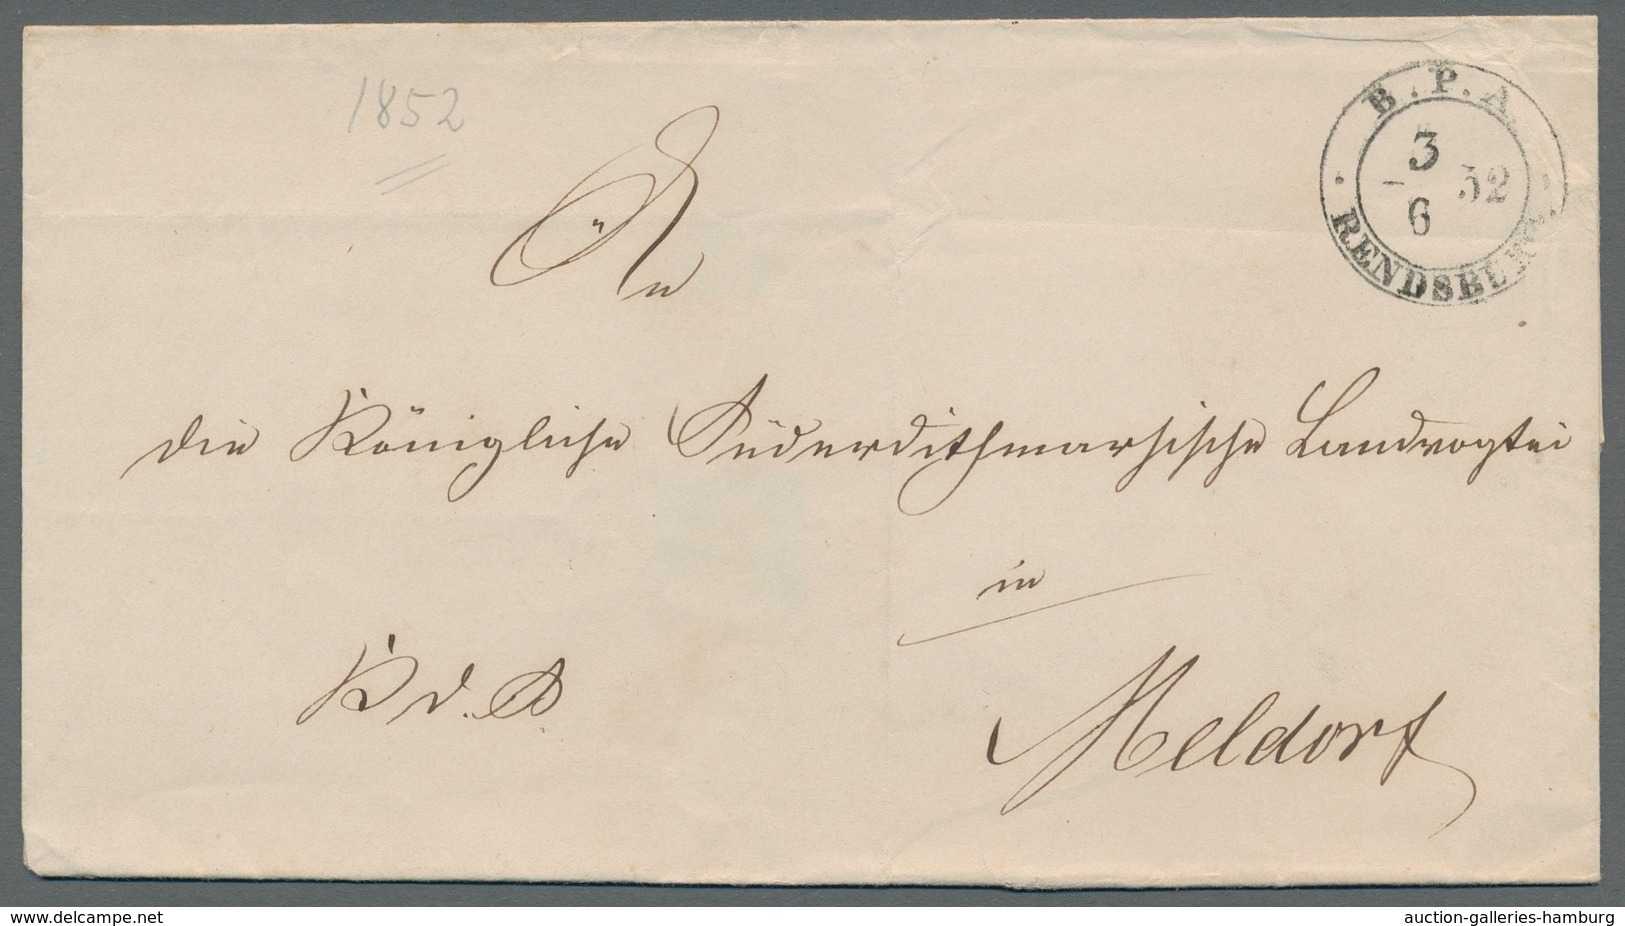 1852
B.P.A.
3
6
52
RENDSBURG
An
die Königliche Süderdithmarsische Landvogtei
in
K. d. S.
Meldorf
www.delcampe.net
auction-galleries-hamburg